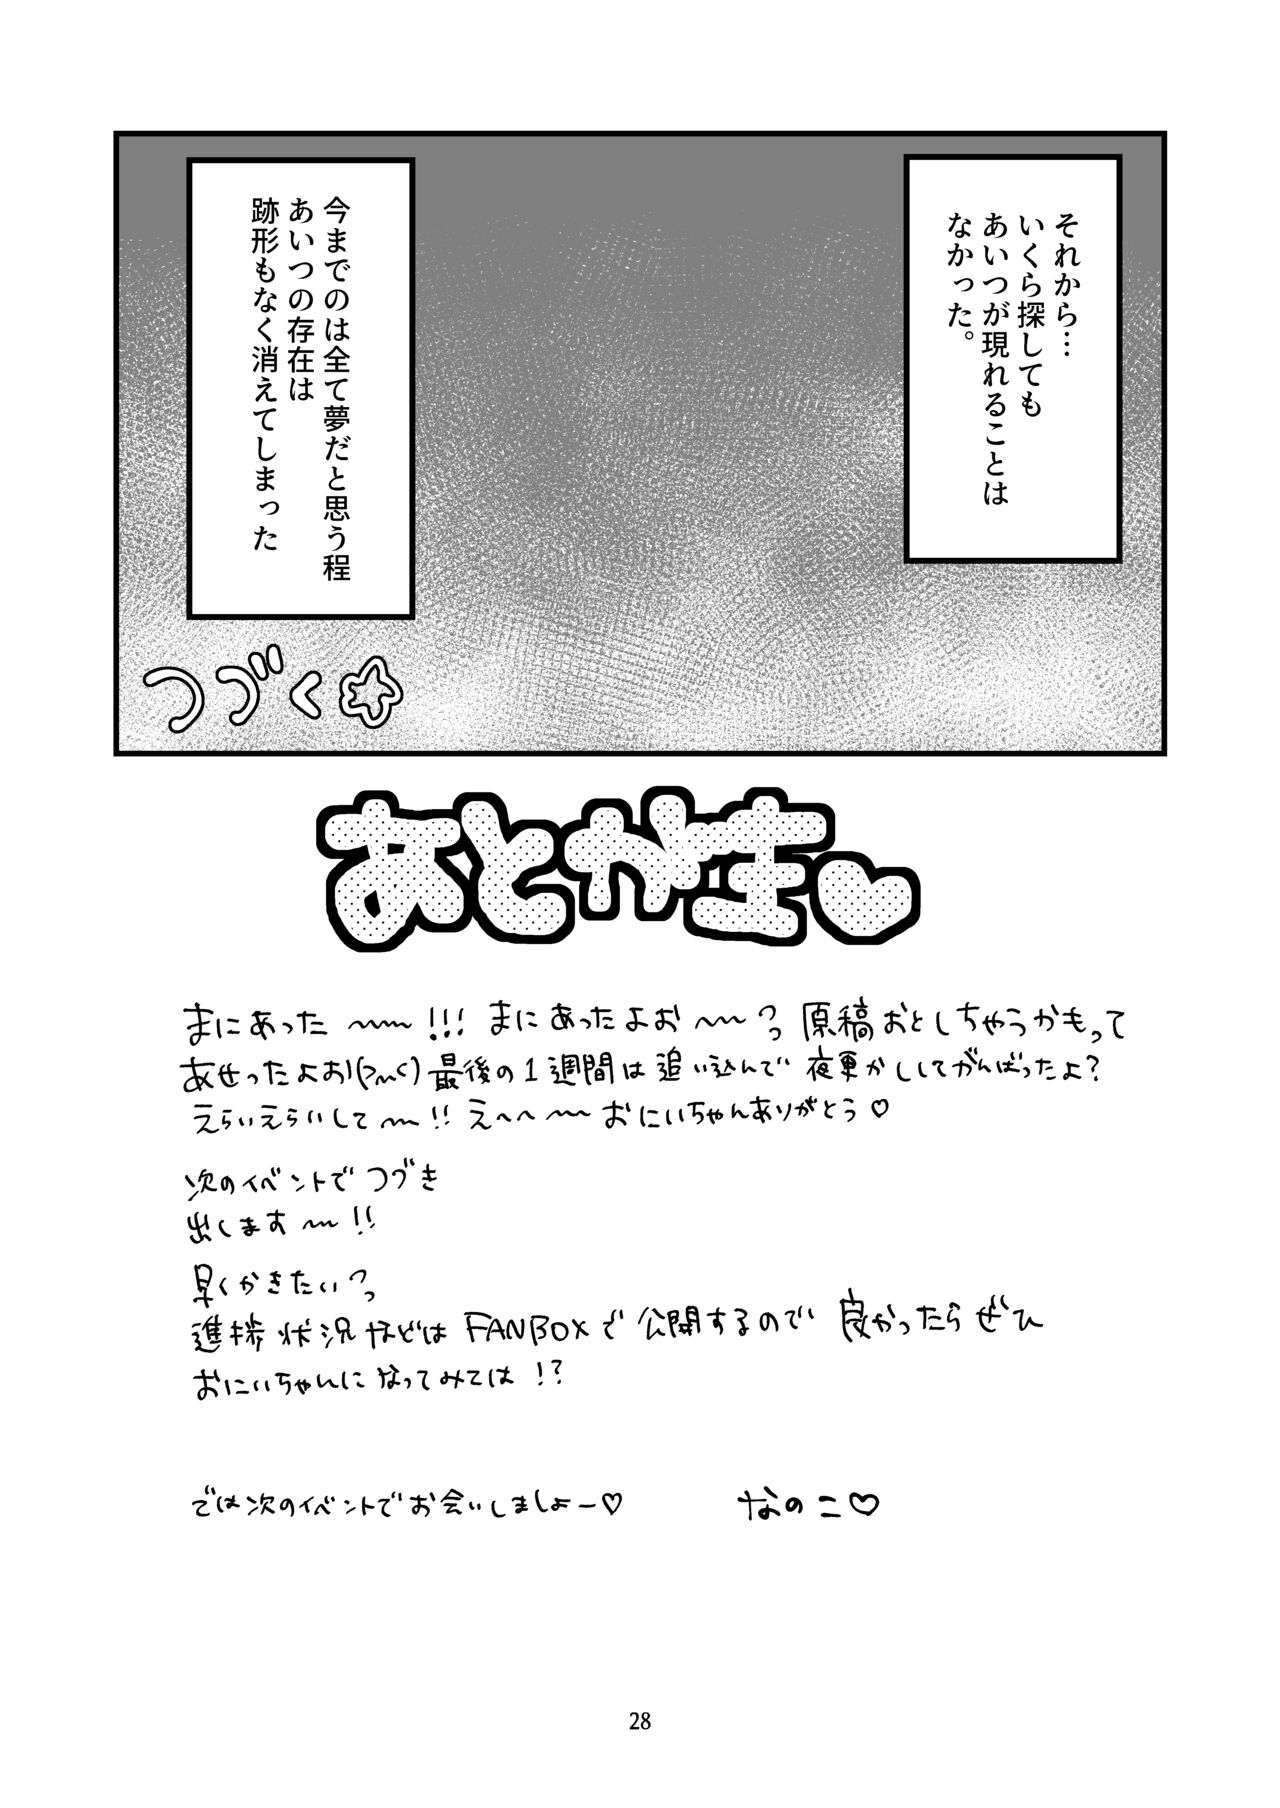 それから…
いくら探しても
あいつが現れることは
なかった。
今までのは全て夢だと思う程
あいつの存在は
跡形もなく消えてしまった
つづく☆
あとがき♥
まにあった〜〜!!! まにあったよお〜〜っっ 原稿おとしちゃうかもって
あせったよお!(>m<) 最後の1週間は追い込んで 夜更かししてがんばったよ?
えらいえらいして〜!! えへへ〜〜 おにいちゃんありがとう♡
次のイベントで つづき
出します〜!!
早くかきたいっっ
進捗状況などは FANBOXで 公開するので 良かったらぜひ
おにいちゃんに なってみては!?
では次のイベントでお会いしましょー♡
なのこ♡
28